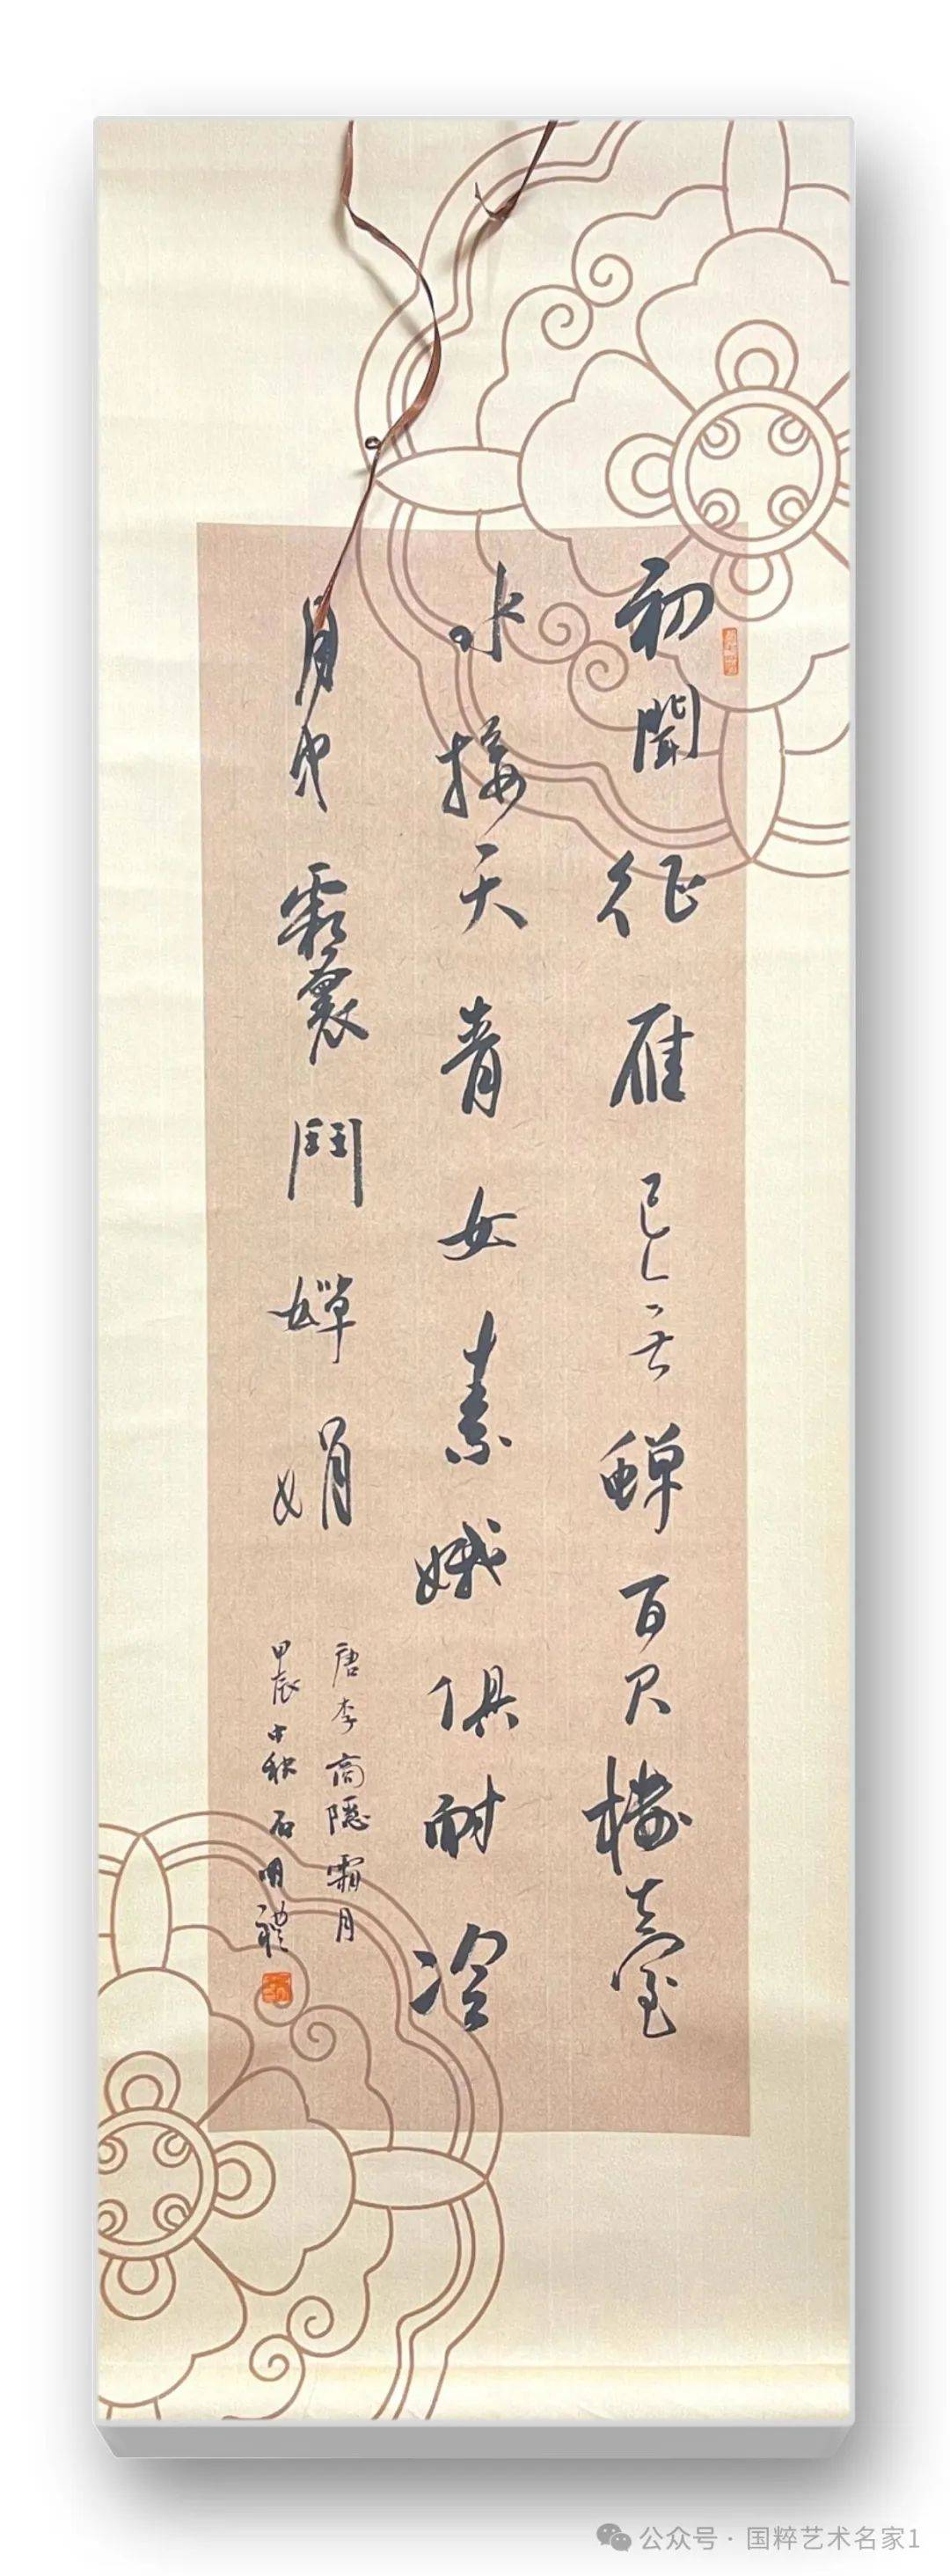 初聞征雁已無蟬百尺樓臺
水接天青女素娥俱耐冷
月中霜裏鬥嬋娟
唐李商隱霜月
甲辰中秋石明禮
公众号·国粹艺术名家1